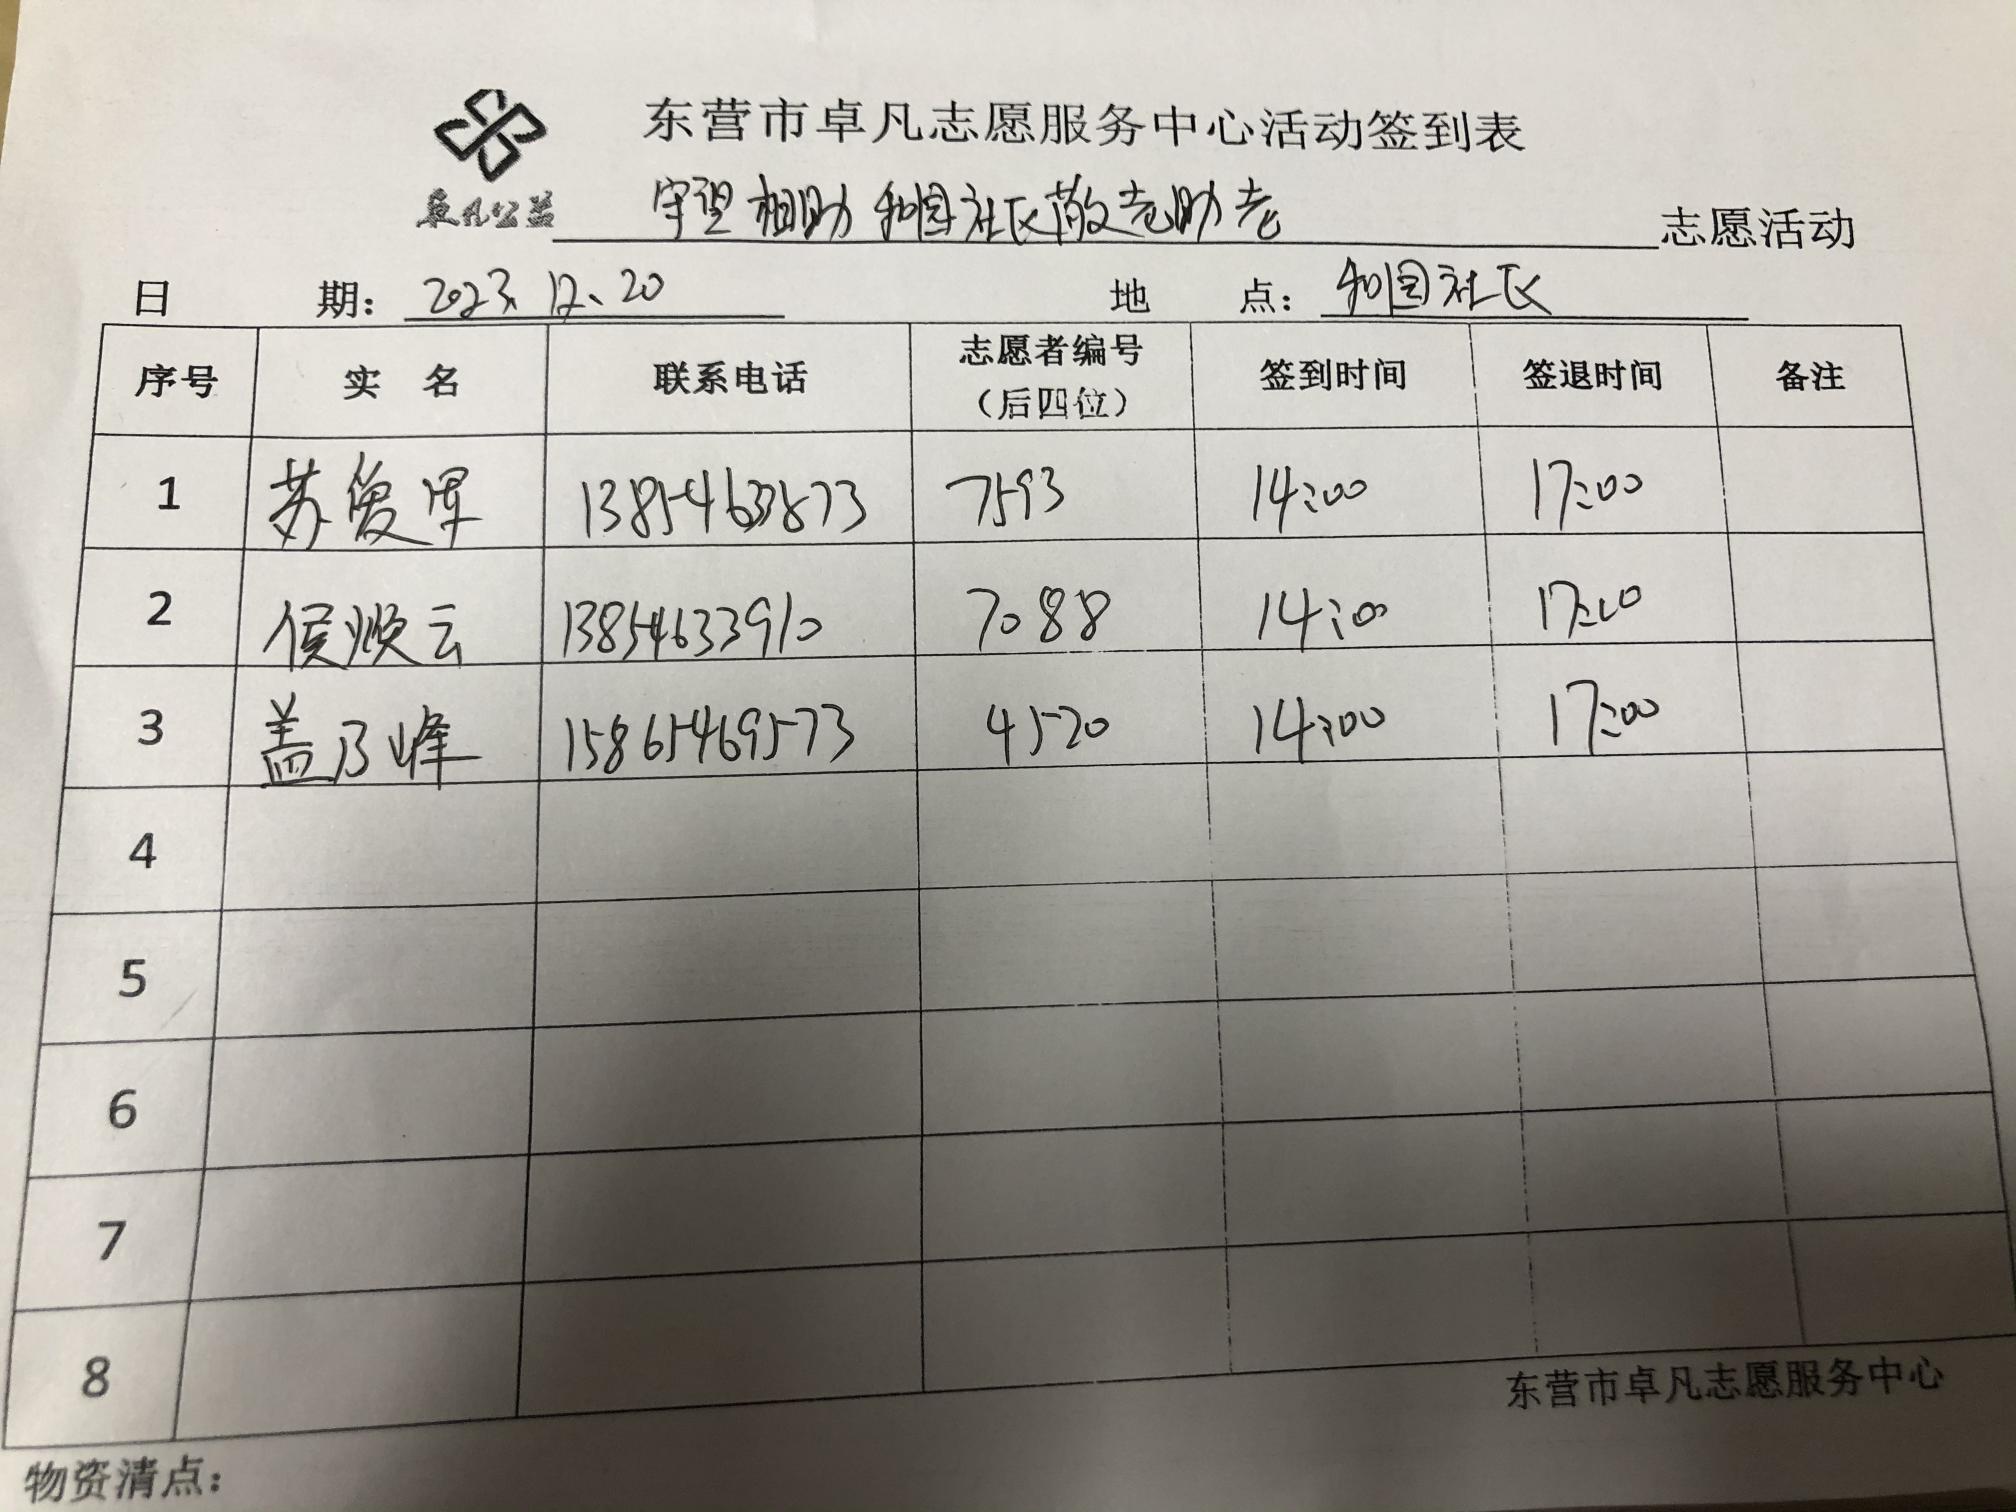 东营市卓凡志愿服务中心活动签到表
卓凡公益
守望相助 和园社区敬老助老 志愿活动
日 期: 2023.12.20 地 点: 和园社区
序号 实 名 联系电话 志愿者编号（后四位） 签到时间 签退时间 备注
1 苏俊军 7593 14:00 17:00
2 侯焕云 13854633910 7088 14:00 17:00
3 盖乃峰 15865469573 4520 14:00 17:00
4
5
6
7
8
东营市卓凡志愿服务中心
物资清点: